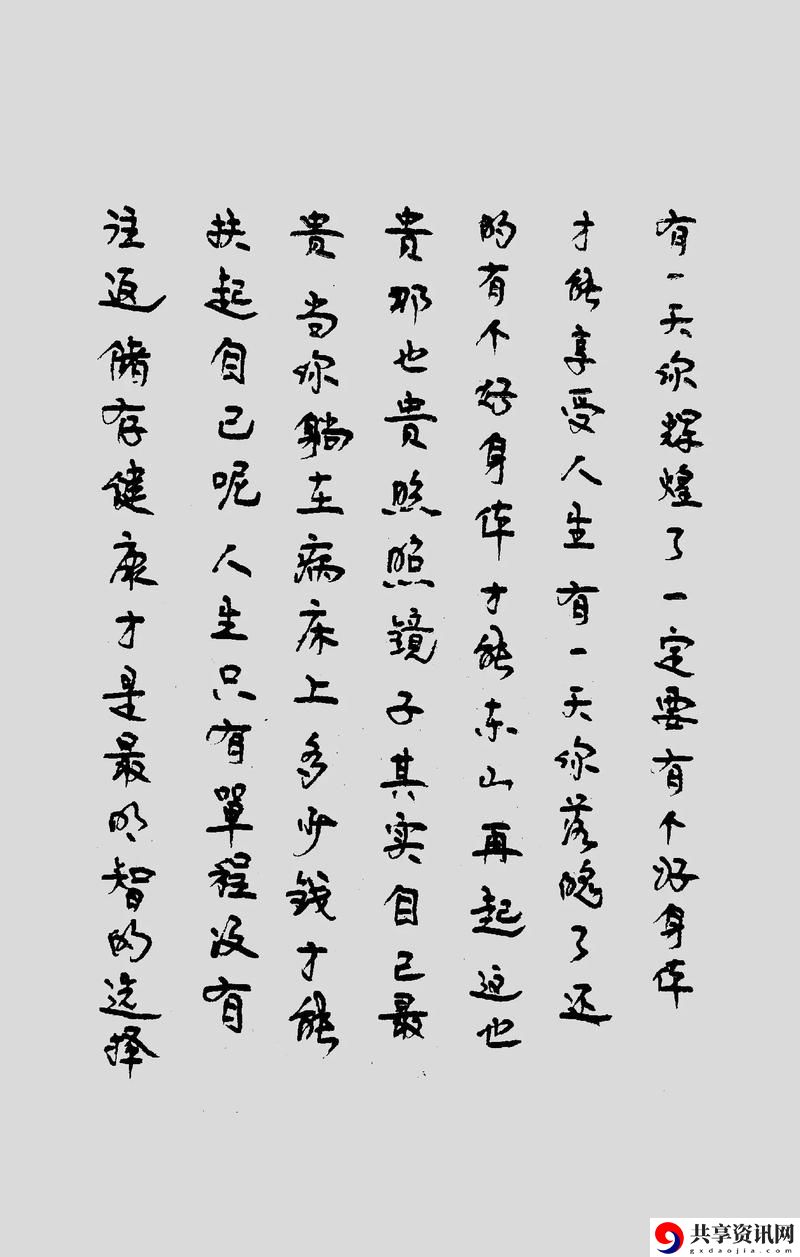 有一天你辉煌了一定要有个好身体
才能享受人生有一天你落魄了还
的有个好身体才能东山再起这也
贵那也贵照照镜子其实自己最
贵当你躺在病床上多少钱才能
扶起自己呢人生只有單程没有
往返储存健康才是最明智的选择
共享资讯网
gxdaojia.com